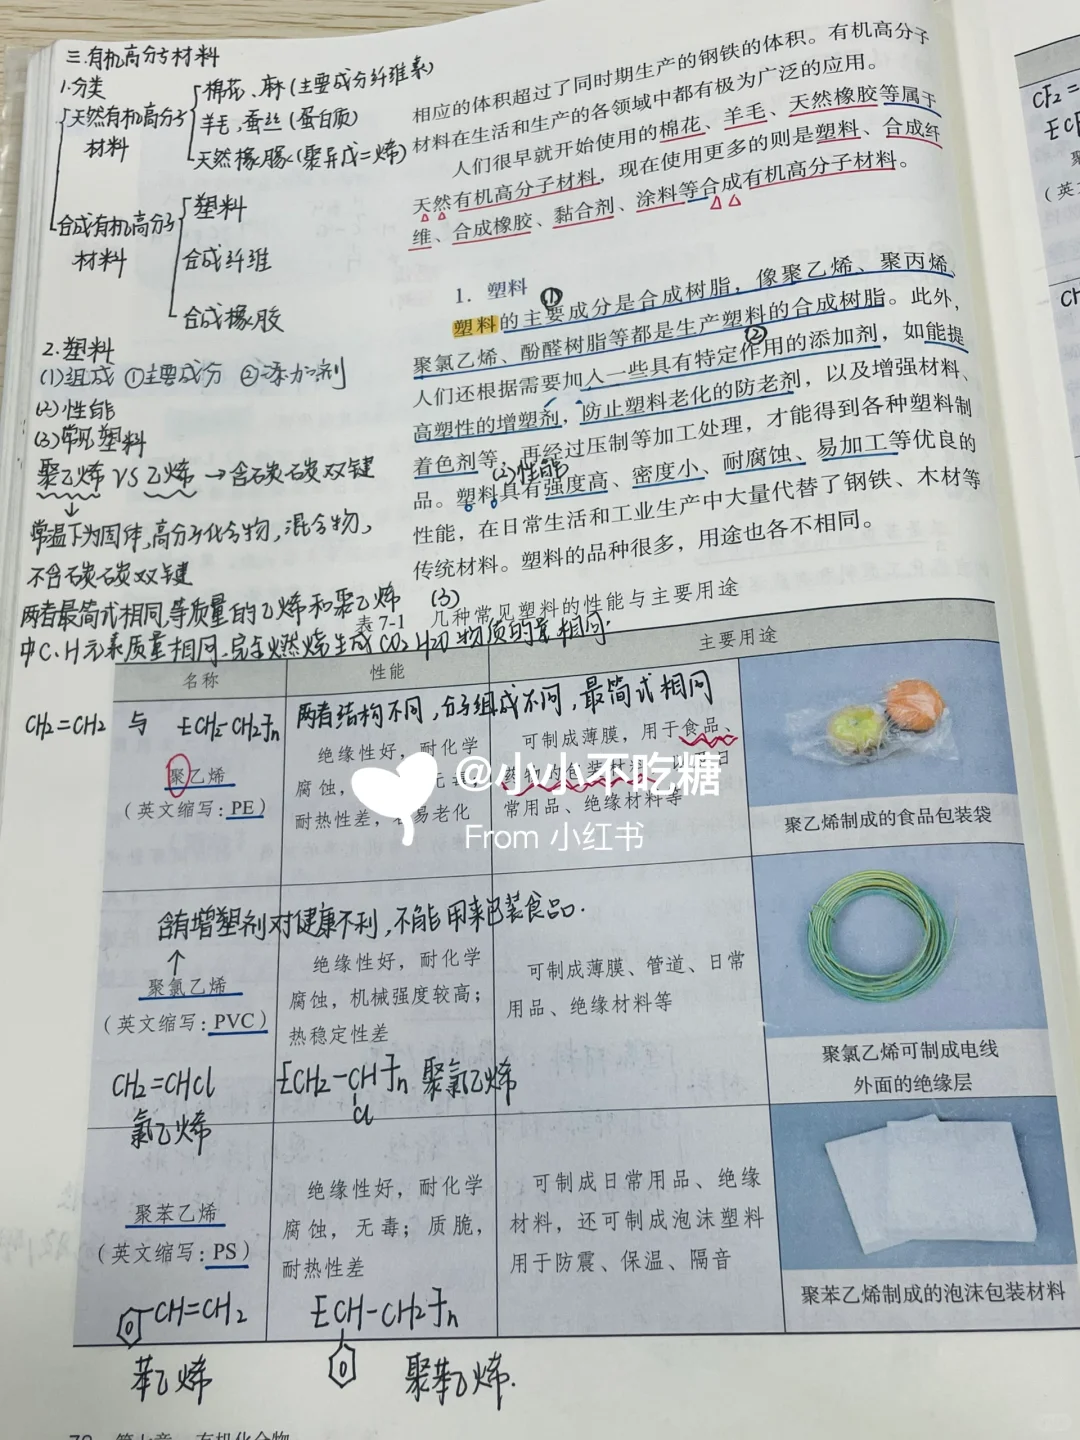 三.有机高分子材料
1.分类
天然有机高分子材料
棉花、麻(主要成分纤维素)
羊毛,蚕丝(蛋白质)
天然橡胶(聚异戊二烯)
合成有机高分子材料
塑料
合成纤维
合成橡胶
2.塑料
(1)组成 ①主要成分 ②添加剂
(2)性能
(3)常见塑料
聚乙烯 VS 乙烯 → 含碳碳双键
↓
常温下为固体,高分子化合物,混合物,
不含碳碳双键
两者最简式相同,等质量的乙烯和聚乙烯
中C、H元素质量相同,完全燃烧生成CO2 H2O 物质的量相同.
相应的体积超过了同时期生产的钢铁的体积。有机高分子
材料在生活和生产的各领域中都有极为广泛的应用。
人们很早就开始使用的棉花、羊毛、天然橡胶等属于
天然有机高分子材料,现在使用更多的则是塑料、合成纤
维、合成橡胶、黏合剂、涂料等合成有机高分子材料。
1. 塑料
①
塑料的主要成分是合成树脂,像聚乙烯、聚丙烯、
聚氯乙烯、酚醛树脂等都是生产塑料的合成树脂。此外,
②
人们还根据需要加入一些具有特定作用的添加剂,如能提
高塑性的增塑剂,防止塑料老化的防老剂,以及增强材料、
着色剂等,再经过压制等加工处理,才能得到各种塑料制
(2)性能
品。塑料具有强度高、密度小、耐腐蚀、易加工等优良的
性能,在日常生活和工业生产中大量代替了钢铁、木材等
传统材料。塑料的品种很多,用途也各不相同。
(3)
表 7-1 几种常见塑料的性能与主要用途
名称 性能 主要用途
CH2=CH2 与 [CH2-CH2]n 两者结构不同,分子组成不同,最简式相同
聚乙烯
(英文缩写:PE)
绝缘性好,耐化学
腐蚀,无毒
耐热性差,容易老化
可制成薄膜,用于食品、
药物的包装材料,以及日
常用品、绝缘材料等
聚乙烯制成的食品包装袋
@小小不吃糖
From 小红书
含有增塑剂对健康不利,不能用来包装食品.
↑
聚氯乙烯
(英文缩写:PVC)
绝缘性好,耐化学
腐蚀,机械强度较高;
热稳定性差
可制成薄膜、管道、日常
用品、绝缘材料等
聚氯乙烯可制成电线
外面的绝缘层
CH2=CHCl
氯乙烯
[CH2-CH]n 聚氯乙烯
Cl
聚苯乙烯
(英文缩写:PS)
绝缘性好,耐化学
腐蚀,无毒;质脆,
耐热性差
可制成日常用品、绝缘
材料,还可制成泡沫塑料
用于防震、保温、隔音
聚苯乙烯制成的泡沫包装材料
CH=CH2
苯乙烯
[CH-CH2]n
聚苯乙烯.
第七章 有机化合物
CF2=